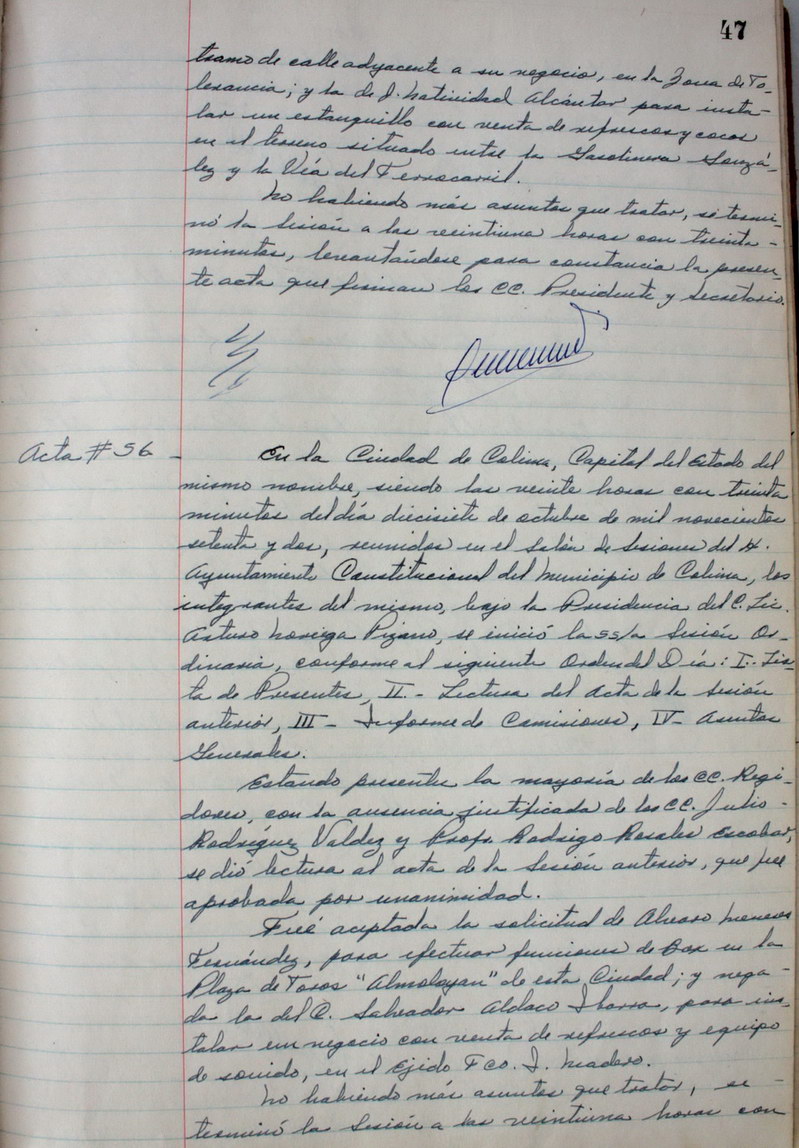 47
tramo de calle adyacente a su negocio, en la Zona de To-
lerancia; y la de J. Natividad Alcántar para insta-
lar un estanquillo con venta de refrescos y cocos
en el terreno situado entre la Gasolinera Gonzá-
lez y la Vía del Ferrocarril.
No habiendo más asuntos que tratar, se termi-
nó la Sesión a las veintiuna horas con treinta -
minutos, levantándose para constancia la presen-
te acta que firman los CC. Presidente y Secretario.
Acta # 56 -
En la Ciudad de Colima, Capital del Estado del
mismo nombre, siendo las veinte horas con treinta
minutos del día diecisiete de octubre de mil novecientos
setenta y dos, reunidos en el Salón de Sesiones del H.
Ayuntamiento Constitucional del Municipio de Colima, los
integrantes del mismo, bajo la Presidencia del C. Lic.
Arturo Noriega Pizano, se inició la 55/a Sesión Or-
dinaria, conforme al siguiente Orden del Día: I.- Lis-
ta de Presentes, II.- Lectura del Acta de la Sesión
anterior, III - Informe de Comisiones, IV- Asuntos
Generales.
Estando presentes la mayoría de los CC. Regi-
dores, con la ausencia justificada de los CC. Julio -
Rodríguez Valdez y Profr. Rodrigo Rosales Escobar,
se dió lectura al acta de la Sesión anterior, que fué
aprobada por unanimidad.
Fué aceptada la solicitud de Alvaro Meneses
Fernández, para efectuar funciones de Box en la
Plaza de Toros "Almoloyan" de esta Ciudad; y nega-
da la del C. Salvador Aldaco Ibarra, para ins-
talar un negocio con venta de refrescos y equipo
de sonido, en el Ejido Fco. I. Madero.
No habiendo más asuntos que tratar, se -
terminó la Sesión a las veintiuna horas con